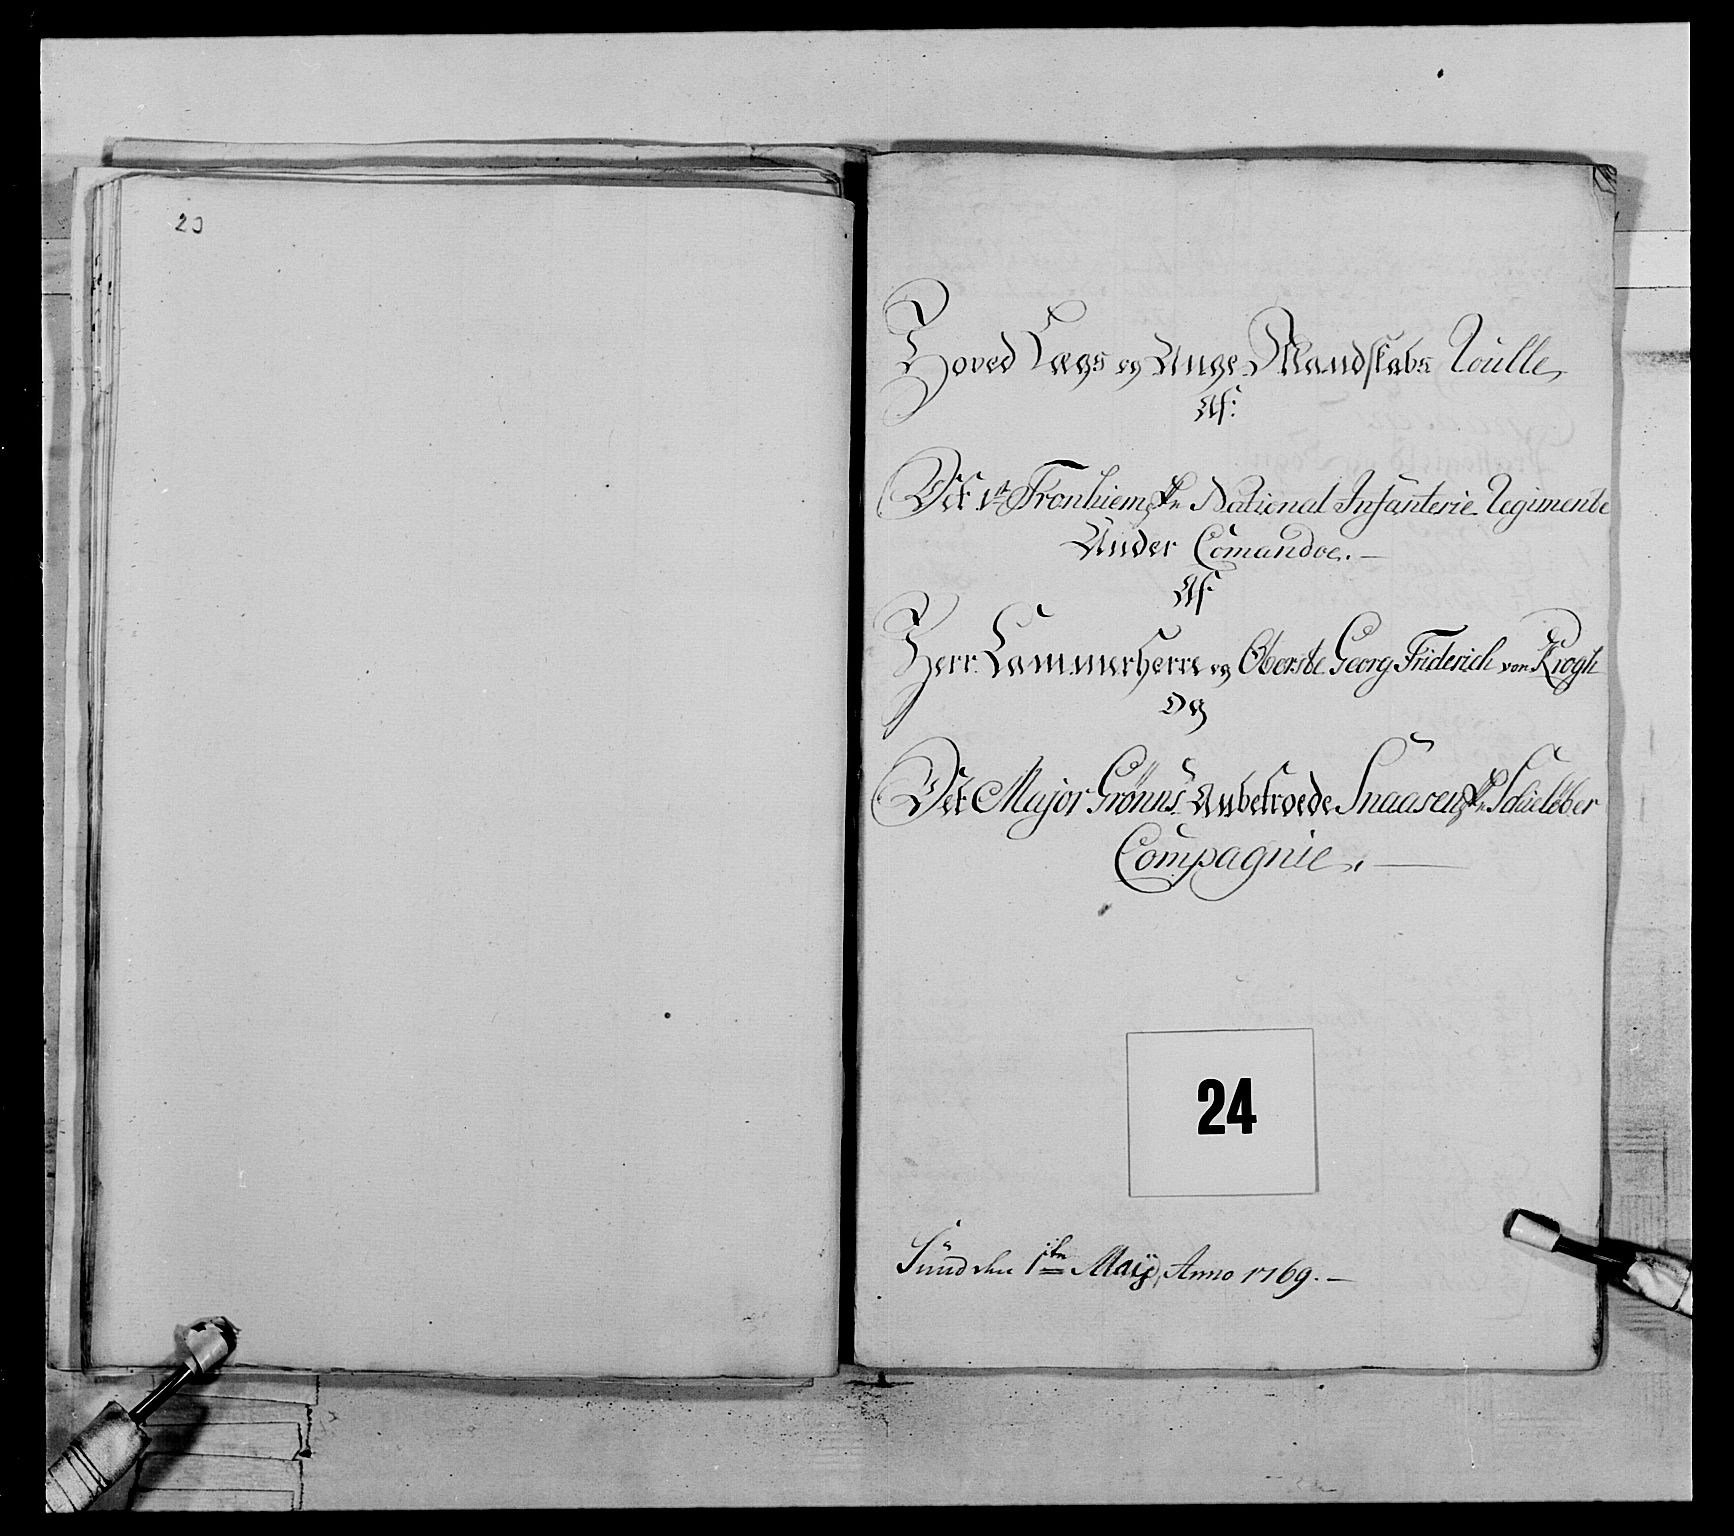 23
Hoved Lægs og Unge Mandskabs Roulle,
Af:
Det 1te Tronhiemske National Infanterie Regimente
Under Comandoe.
Af
Herr Cammerherre og Oberste Georg Friderich von Krogh
Og
Det Major Grønns Anbetroede Snaasenske Schielöber
Compagnie.
24
Sund den 1ste Maij Anno 1769.